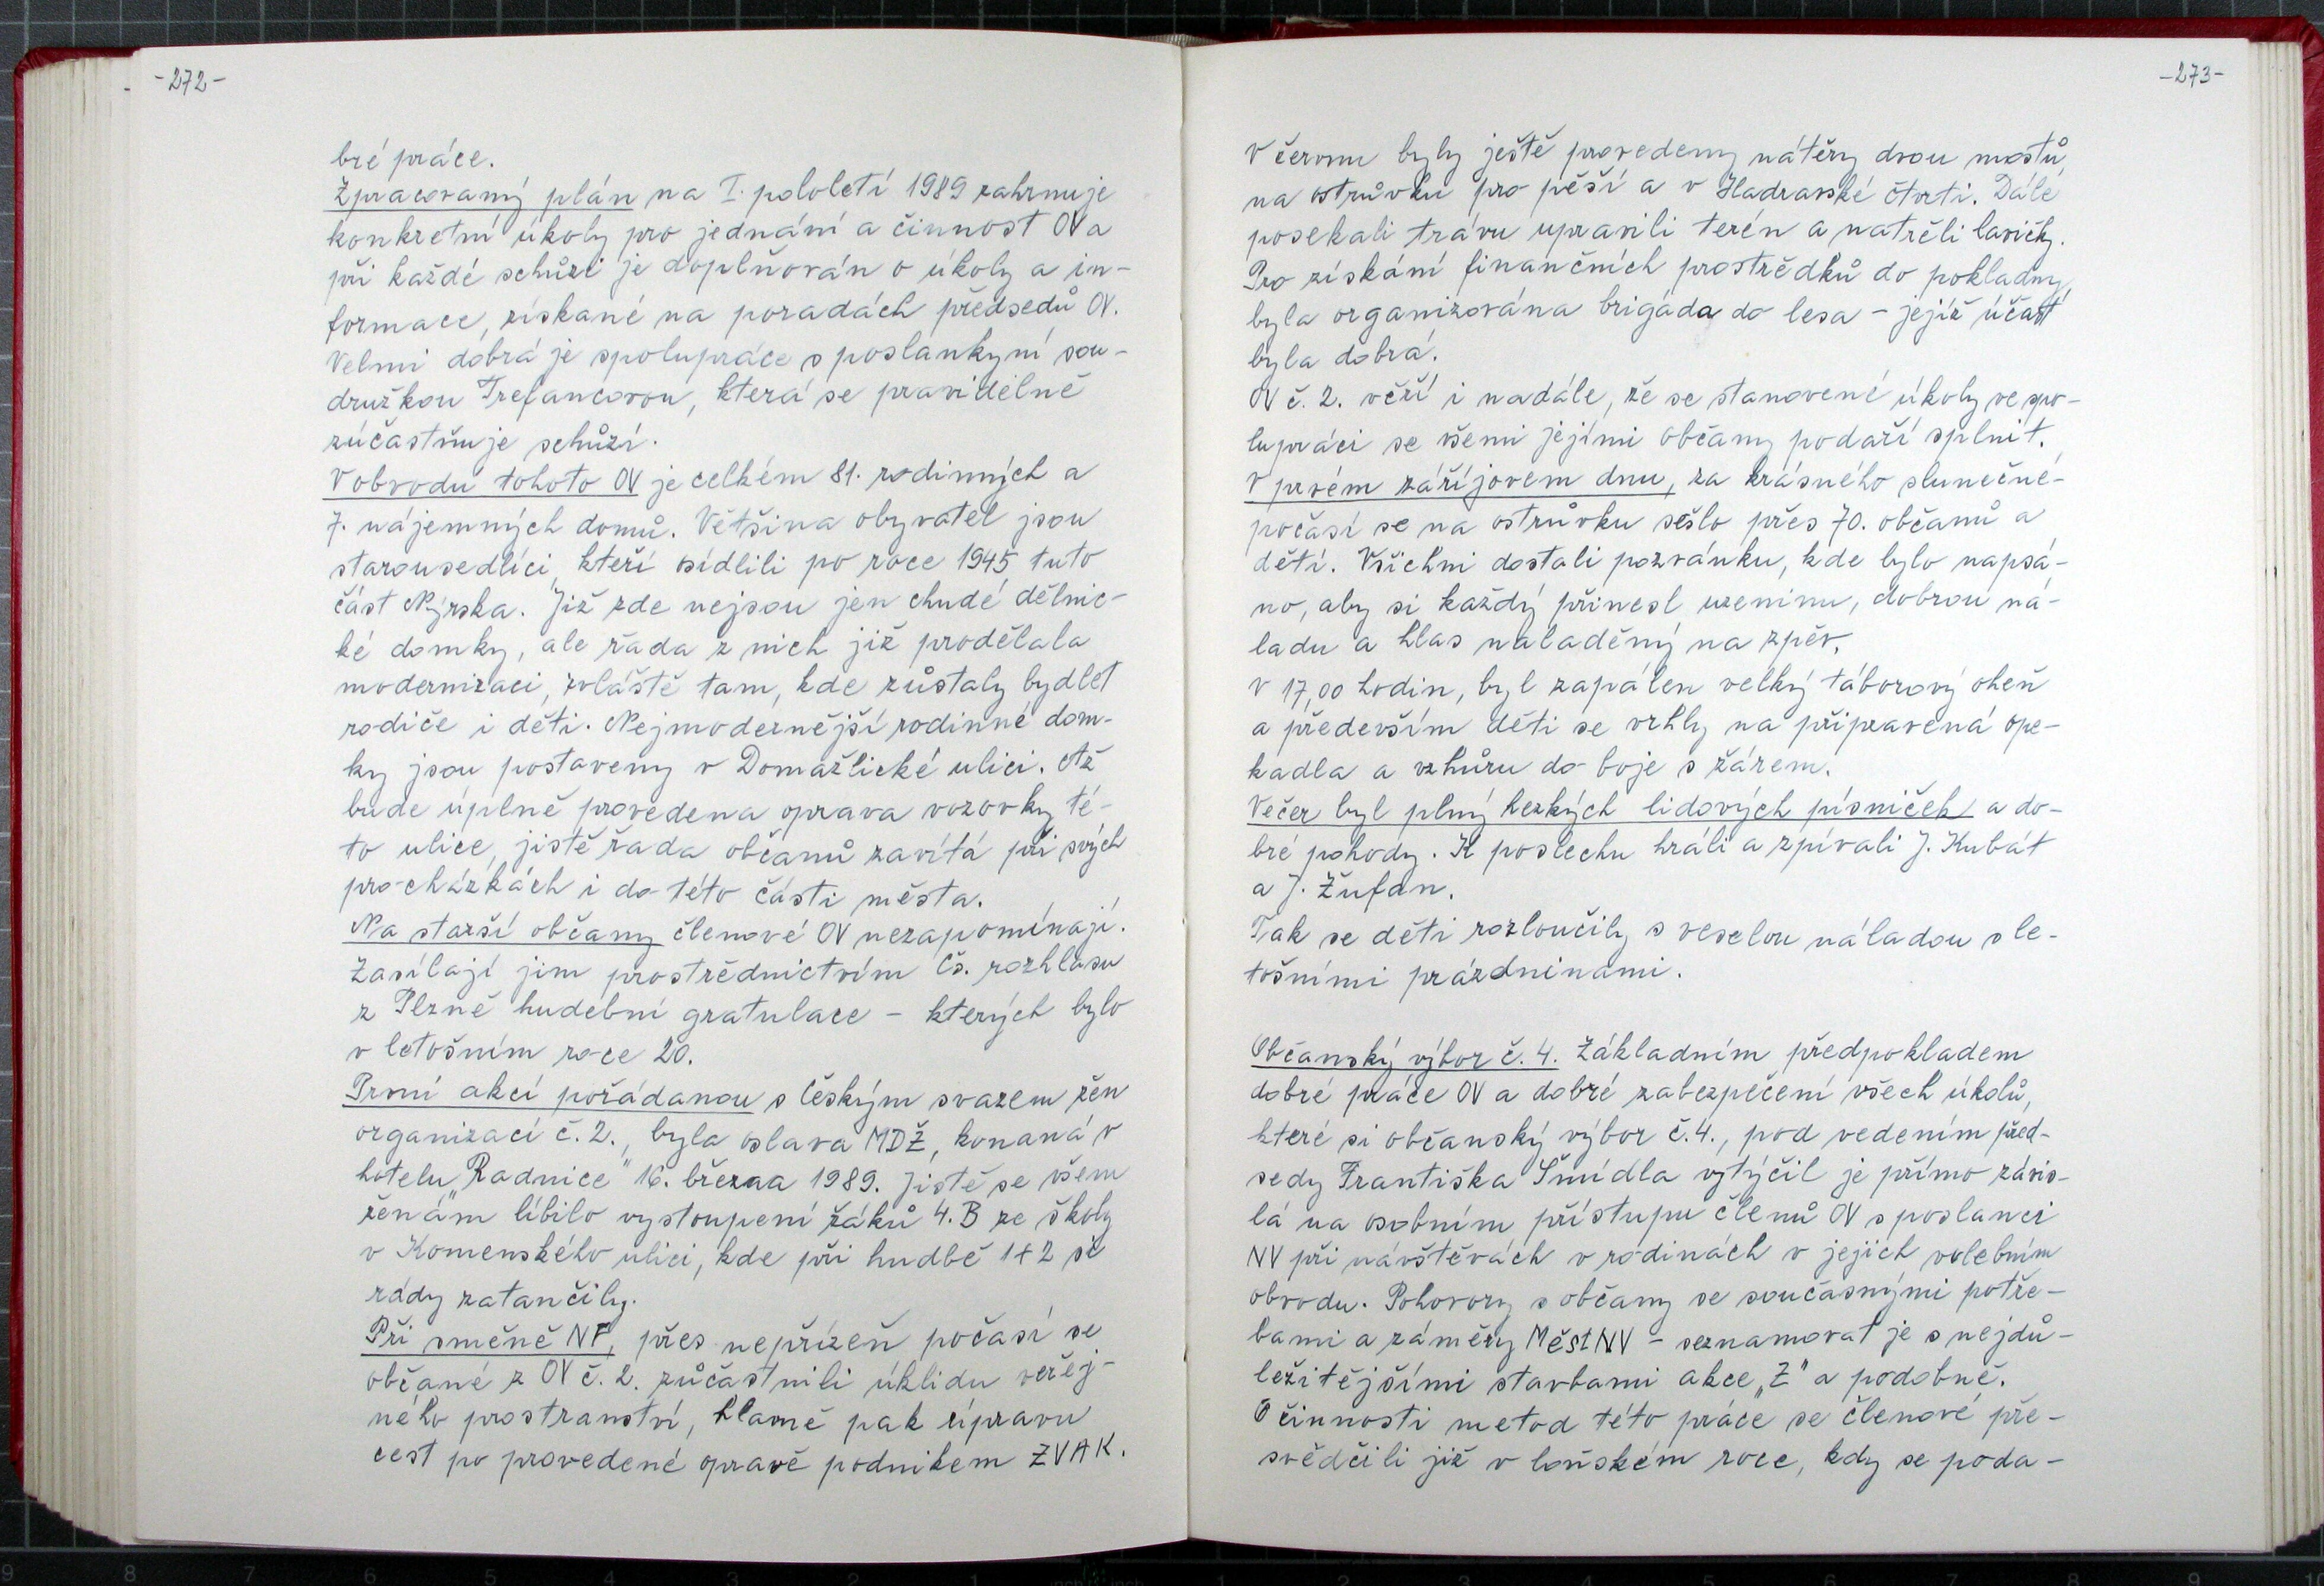 -272-
bré práce.
Zpracovaný plán na I. pololetí 1989 zahrnuje
konkretní úkoly pro jednání a činnost OV a
při každé schůzi je doplňován o úkoly a in-
formace, získané na poradách předsedů OV.
Velmi dobrá je spolupráce s poslankyní sou-
družkou Trefancovou, která se pravidelně
zúčastňuje schůzí.
V obvodu tohoto OV je celkém 81. rodinných a
7. nájemných domů. Většina obyvatel jsou
starousedlíci, kteří osídlili po roce 1945 tuto
část Nýrska. Již zde nejsou jen chudé dělnic-
ké domky, ale řada z nich již prodělala
modernizaci, zvláště tam, kde zůstaly bydlet
rodiče i děti. Nejmodernější rodinné dom-
ky jsou postaveny v Domažlické ulici. Až
bude úplně provedena oprava vozovky té-
to ulice, jistě řada občanů zavítá při svých
procházkách i do této části města.
Na starší občany členové OV nezapomínají.
Zasílají jim prostřednictvím Čs. rozhlasu
z Plzně hudební gratulace - kterých bylo
v letošním roce 20.
První akcí pořádanou s Českým svazem žen
organizací č. 2., byla oslava MDŽ, konaná v
hotelu „Radnice" 16. března 1989. Jistě se všem
ženám líbilo vystoupení žáků 4. B ze školy
v Komenského ulici, kde při hudbě 1+2 si
rády zatančily.
Při směně NF, přes nepřízeň počasí se
občané z OV č. 2. zůčastnili úklidu veřej-
ného prostranství, hlavně pak úpravu
cest po provedené opravě podnikem ZVAK.
-273-
V červnu byly ještě provedeny nátěry dvou mostů
na ostrůvku pro pěší a v Hadravské čtvrti. Dále
posekali trávu upravili terén a natřeli lavičky.
Pro získání finančních prostředků do pokladny,
byla organizována brigáda do lesa - jejíž účast
byla dobrá.
OV č. 2. věří i nadále, že se stanovené úkoly ve spo-
lupráci se všemi jejími občany podaří splnit.
V prvém zářijovém dnu, za krásného slunečné-
počasí se na ostrůvku sešlo přes 70. občanů a
dětí. Všichni dostali pozvánku, kde bylo napsá-
no, aby si každý přinesl uzeninu, dobrou ná-
ladu a hlas naladěný na zpěv.
V 17,00 hodin, byl zapálen velký táborový oheň
a především děti se vrhly na připravená ope-
kadla a vzhůru do boje s žárem.
Večer byl plný hezkých lidových písniček a do-
bré pohody. K poslechu hráli a zpívali J. Kubát
a J. Žufan.
Tak se děti rozloučily s veselou náladou s le-
tošními prázdninami.
Občanský výbor č. 4. Základním předpokladem
dobré práce OV a dobré zabezpečení všech úkolů,
které si občanský výbor č. 4., pod vedením před-
sedy Františka Šmídla vytýčil je přímo závis-
lá na osobním přístupu členů OV s poslanci
NV při návštěvách v rodinách v jejich volebním
obvodu. Pohovory s občany se současnými potře-
bami a záměry MěstNV - seznamovat je s nejdů-
ležitějšími stavbami akce „Z" a podobně.
O činnosti metod této práce se členové pře-
svědčili již v loňském roce, kdy se poda-